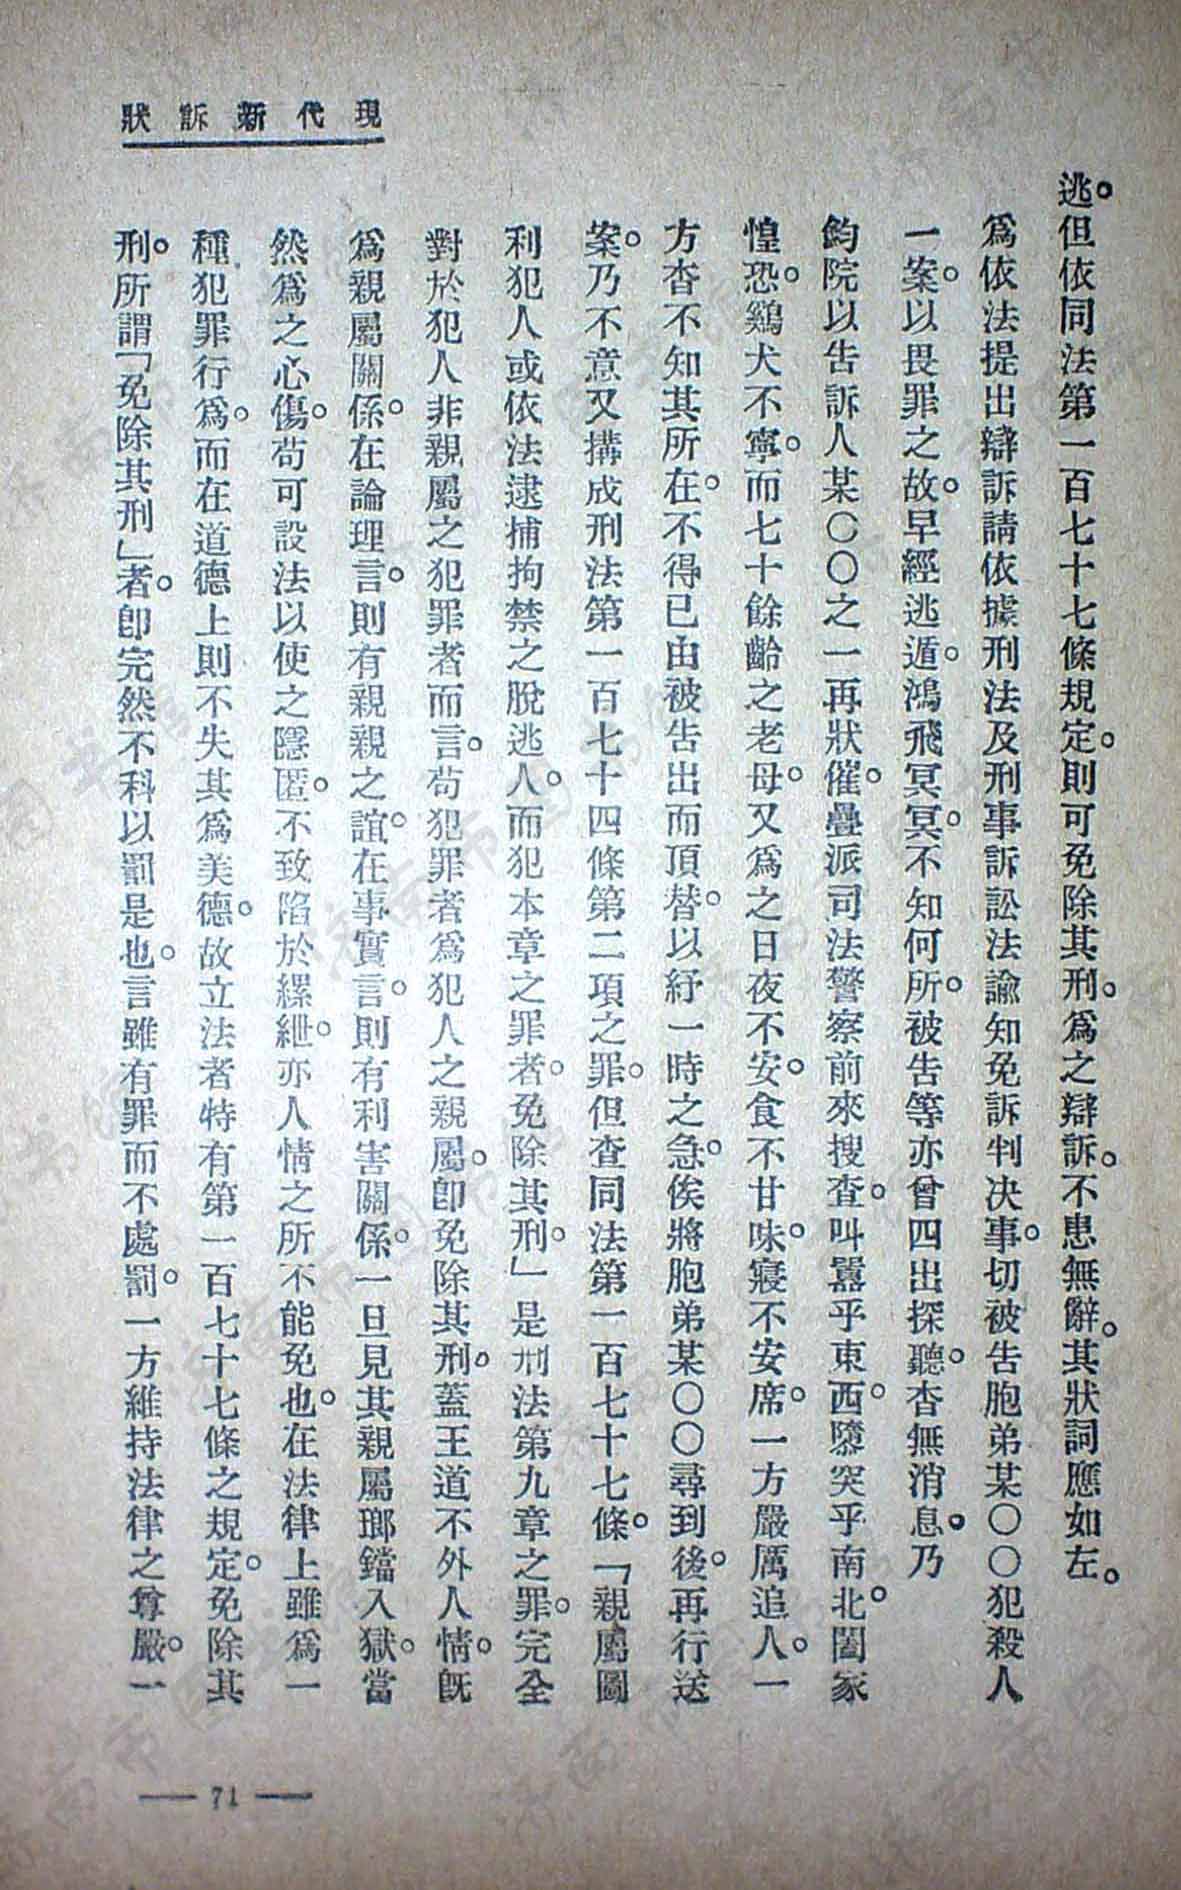 現代新訴狀
逃。但依同法第一百七十七條規定。則可免除其刑。爲之辯訴。不患無辭。其狀詞應如左。
爲依法提出辯訴請依據刑法及刑事訴訟法諭知免訴判決事。切被告胞弟某〇〇犯殺人
一案。以畏罪之故。早經逃遁。鴻飛冥冥。不知何所。被告等亦曾四出探聽。杳無消息。乃
鈞院以告訴人某〇〇之一再狀催。疊派司法警察前來搜查。叫囂乎東西。隳突乎南北。闔家
惶恐。鷄犬不寧。而七十餘齡之老母。又爲之日夜不安。食不甘味。寢不安席。一方嚴厲追人。一
方杳不知其所在。不得已由被告出而頂替。以紓一時之急。俟將胞弟某〇〇尋到後。再行送
案。乃不意又搆成刑法第一百七十四條第二項之罪。但查同法第一百七十七條。「親屬圖
利犯人或依法逮捕拘禁之脫逃人。而犯本章之罪者。免除其刑。」是刑法第九章之罪。完全
對於犯人非親屬之犯罪者而言。苟犯罪者爲犯人之親屬。卽免除其刑。蓋王道不外人情。旣
爲親屬關係。在論理言。則有親親之誼。在事實言。則有利害關係。一旦見其親屬瑯鐺入獄。當
然爲之心傷。苟可設法以使之隱匿。不致陷於縲絏。亦人情之所不能免也。在法律上雖爲一
種犯罪行爲。而在道德上則不失其爲美德。故立法者特有第一百七十七條之規定。免除其
刑。所謂「免除其刑」者。卽完然不科以罰是也。言雖有罪而不處罰。一方維持法律之尊嚴。一
— 71 —
济南市图书馆